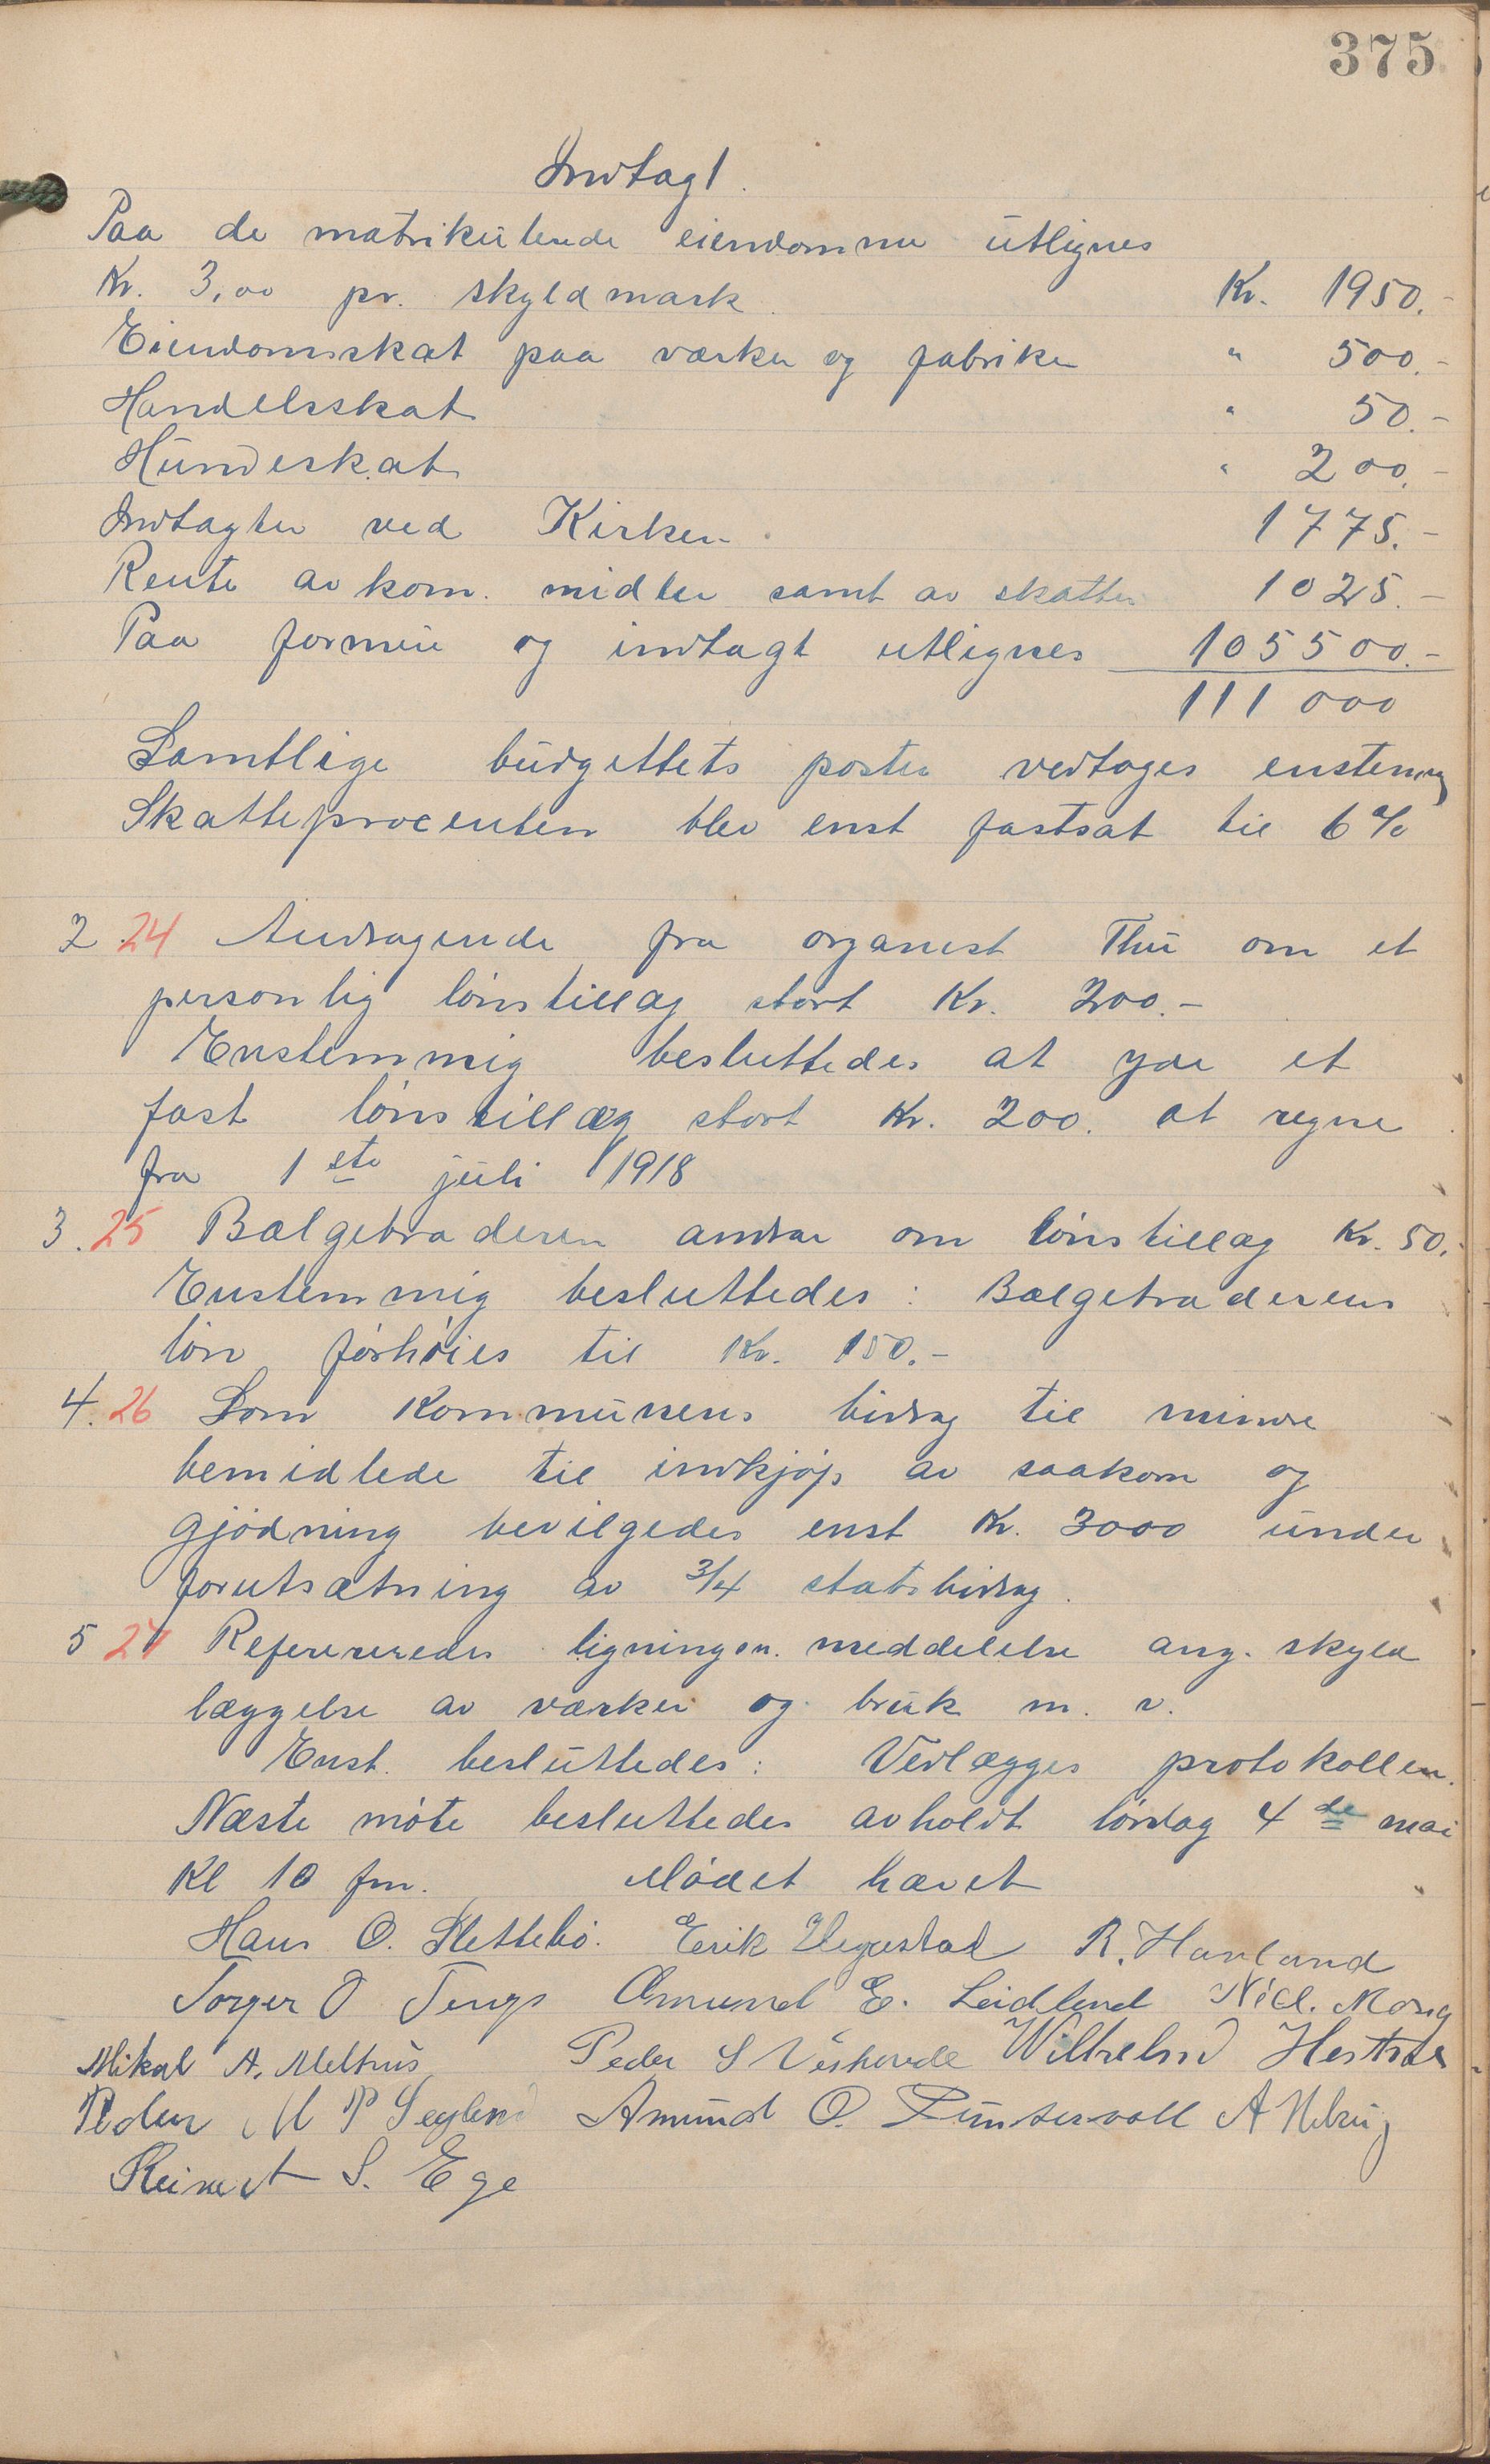 375
Indtægt.
Paa de matrikulerede eiendomme utlignes
Kr. 3,00 pr. skyldmark. Kr. 1950.-
Eiendomsskat paa værker og fabriker " 500.-
Handelsskat " 50.-
Hundeskat " 200.-
Indtægter ved Kirken. 1775.-
Rente av kom. midler samt av skatter 1025.-
Paa formue og indtægt utlignes 105500.-
111 000
Samtlige budgettets poster vedtages enstemmig
Skatteprocenten blev enst fastsat til 6 %
2 24 Andragende fra organist Thu om et
personlig lönstillæg stort Kr. 200.-
Enstemmig besluttedes at yde et
fast lönstillæg stort Kr. 200. at regne
fra 1ste juli 1918
3. 25 Bælgetræderen andrar om lönstillæg Kr. 50.-
Enstemmig besluttedes: Bælgetræderens
lön forhöies til Kr. 150.-
4. 26 Som Kommunens bidrag til mindre
bemidlede til indkjöp av saakorn og
gjödning bevilgedes enst Kr. 3000 under
forutsætning av 3/4 statsbidrag.
5 27 Refereredes ligningsn. meddelelse ang. skyld
læggelse av værker og bruk m. v.
Enst. besluttedes: Vedlægges protokollen.
Næste möte besluttedes avholdt lördag 4de mai
Kl 10 fm. Mödet hævet
Hans O. Slettebö. Erik Hegrestad R. Havland
Torger O Tengs Osmund E. Leidland Nicl. Mong
Mikal A. Melhus Peder S Vishovde Wilhelm
Peder M P Segleno Amund O. Puntervoll A
Reinert S. Ege